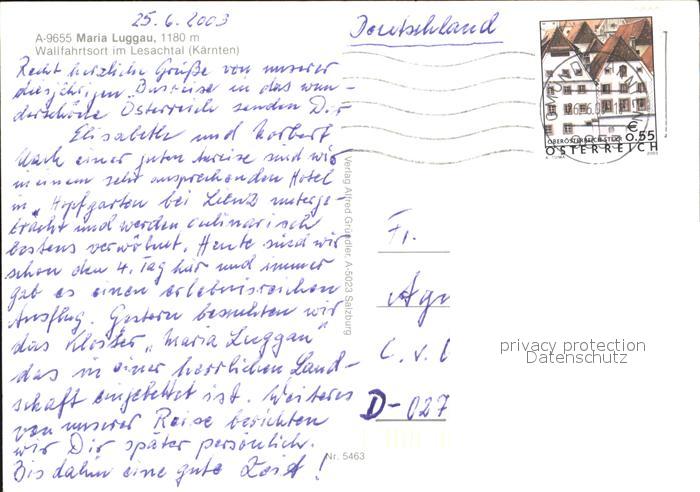 25.6.2003
Deutschland
A-9655 Maria Luggau, 1180 m
Wallfahrtsort im Lesachtal (Kärnten)
Recht herzliche Grüße von unserer
diesjährigen Busreise in das wun-
derschöne Österreich senden Dir
Elisabeth und Norbert
Nach einer guten Anreise sind wir
in einem sehr ansprechenden Hotel
in „Hopfgarten bei Lienz unterge-
bracht und werden culinarisch
bestens verwöhnt. Heute sind wir
schon den 4. Tag hier und immer
gab es einen erlebnisreichen
Ausflug. Gestern besuchten wir
das Kloster „Maria Luggau"
das in einer herrlichen Land-
schaft eingebettet ist. Weiteres
von unserer Reise berichten
wir Dir später persönlich.
Bis dahin eine gute Zeit!
Verlag Alfred Gründler, A-5023 Salzburg
Nr. 5463
€ 0,55
OBERÖSTERREICH · STEYR
ÖSTERREICH
2003
Fr.
C. v.
D-027
privacy protection
Datenschutz